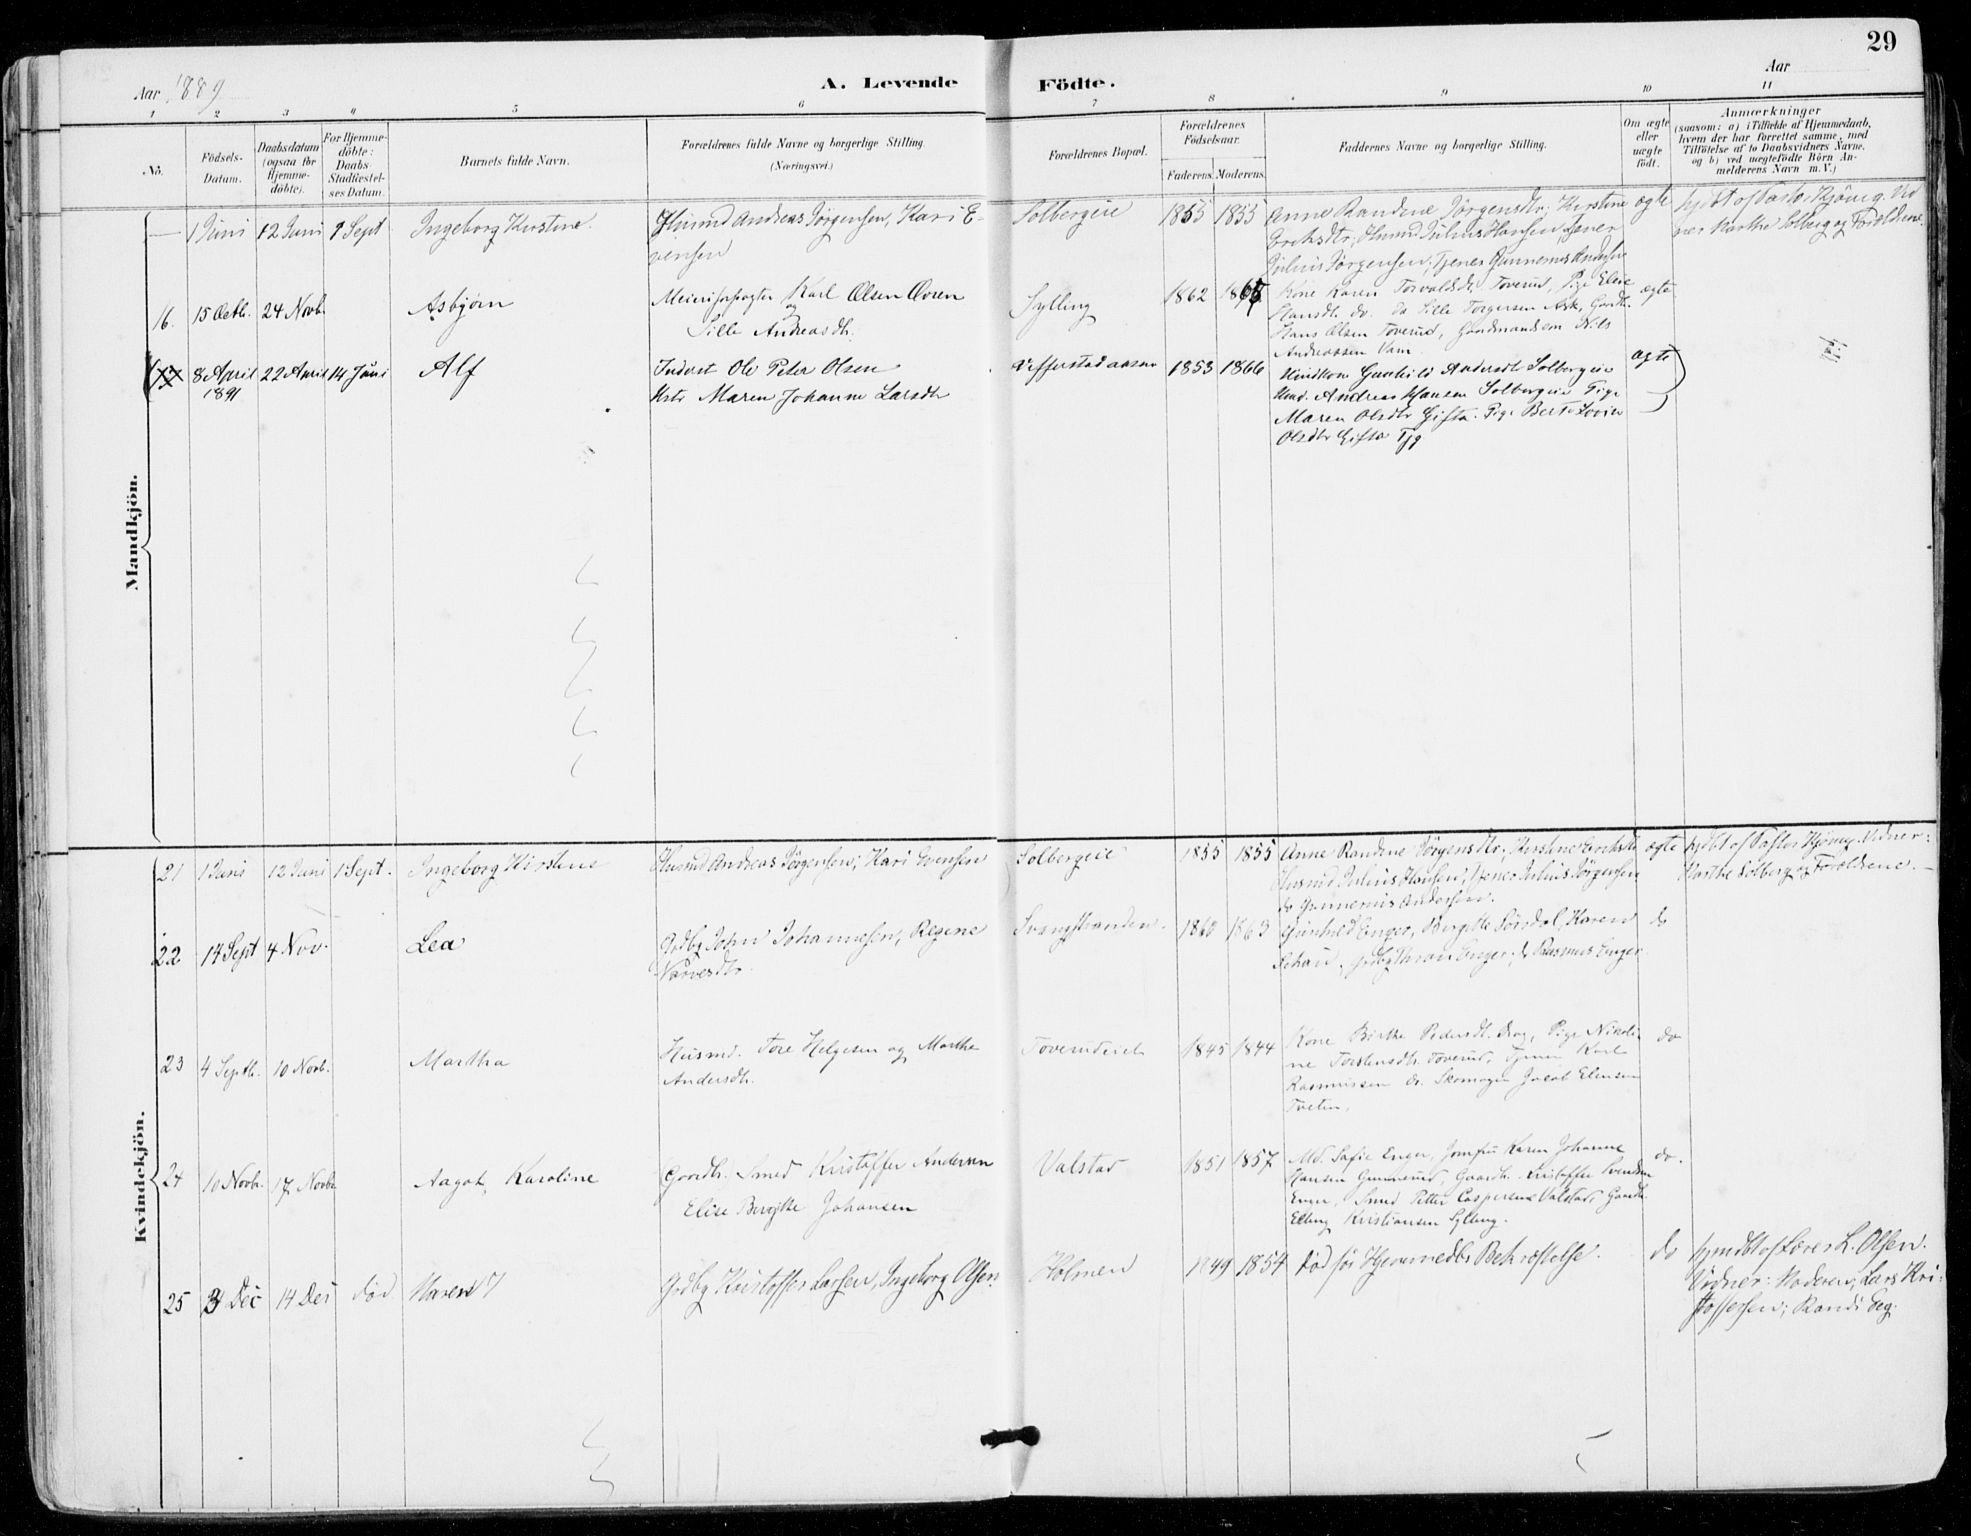 29
Aar 1889
A. Levende Födte.
Aar
1 2 3 4 5 6 7 8 9 10 11
Nö.
Födsels-
Datum.
Daabsdatum
(ogsaa for
Hjemme-
döbte).
For Hjemme-
döbte:
Daabs
Stadfæstel-
ses Datum.
Barnets fulde Navn.
Forældrenes fulde Navne og borgerlige Stilling.
(Næringsvei.)
Forældrenes Bopæl.
Forældrenes
Födselsaar.
Faderens. Moderens.
Faddernes Navne og borgerlige Stilling.
Om ægte
eller
uægte
födt.
Anmærkninger
(saasom: a) i Tilfælde af Hjemmedaab,
hvem der har forrettet samme, med
Tilföielse af to Daabsvidners Navne.
og b) ved uægtefödte Börn An-
melderens Navn m. V.)
Mandkjön.
— 1 Juni 12 Juni 1 Sept Ingeborg Kirstine.
Husmd Andreas Jørgensen, Kari E-
vensen
Solbergeie 1855 1855
Anne Randene Jørgensdtr; Kirstine
Eriksdtr; Husmd Julius Hansen Tjener
Julius Jørgensen; Tjener Gunnerius Andersen
ægte
hjdbt af Pastor Hjöneg. Vid
ner Marthe Solberg og Forældrene.
16. 15 Octb. 24 Novb. Asbjørn
Meieriforpagter Karl Olsen Ovren
og Sille Andreasdtr.
Sylling 1862 1865
Kone Karen Torvaldsdtr Toverud, Pige Eline
Hansdtr. do. Sille Torgersen Ask, Gaardbr.
Hans Olsen Toverud, Gaardmandssøn Nils
Andreassen Vam.
ægte
17 8 April 22 April 14 Juni Alf
1891
Inderst Ole Peter Olsen
Hstr Maren Johanne Larsdtr
Vefferstadaasen 1853 1866
Hmdkone Gunhild Andersdtr Solbergeie
Hmd. Andreas Hansen Solbergeie Pige
Maren Olsdtr Gifta. Pige Berte Lovise
Olsdtr Gifta
ægte
Kvindekjön.
21 1 Juni 12 Juni 1 Sept. Ingeborg Kirstine
Husmd Andreas Jørgensen; Kari Evensen
Solbergeie 1855 1855
Anne Randene Jörgensdtr; Kirstine Eriksdtr
Husmd Julius Hansen, Tjener Julius Jörgensen
do Gunnerius Andersen.
ægte
hjdbt af Pastor Hjöneg. Vidner:
Marthe Solberg og Forældrene. —
22 14 Sept 4 Nov. Lea
Grdbg John Johannesen, Regine
Narvesdtr.
Svangstranden. 1860 1863
Gunhild Enger, Birgitte Sørsdal, Karen
Schau, Grdbg Thron Enger; do Rasmus Enger
do
23 4 Septb. 10 Novb. Martha
Husmd. Tore Helgesen og Marthe
Andersdtr.
Toverudeiet 1845 1844
Kone Birthe Pedersdtr. Brag, Pige Nikoli-
ne Torstensdtr. Toverud, Tjener Karl
Rasmussen do. Skomager Jacob Ellensen
Tveten.
do
24 10 Novb. 17 Novbr Aagot Karoline
Gaardbr. Smed Kristoffer Andersen
Elise Birgitte Johansen
Valstad 1851 1857
Md. Safie Enger, Jomfru Karen Johanne
Hansen Gunnerud, Gaardbr. Kristoffer Svendsen
Enger, Smed Petter Caspersen Valstad, Gaardbr.
Elling Kristiansen Sylling.
do.
25 3 Dec 14 Dec död Maren
Grdbg Kristoffer Larsen, Ingeborg Olsen
Holmen 1849 1854
Död før Hjemmedbs Bekræftelse.
do
hjmdbt af Lærer L. Olsen.
Vidner: Moderen; Lars Kri-
stoffersen; Randi Eeg.